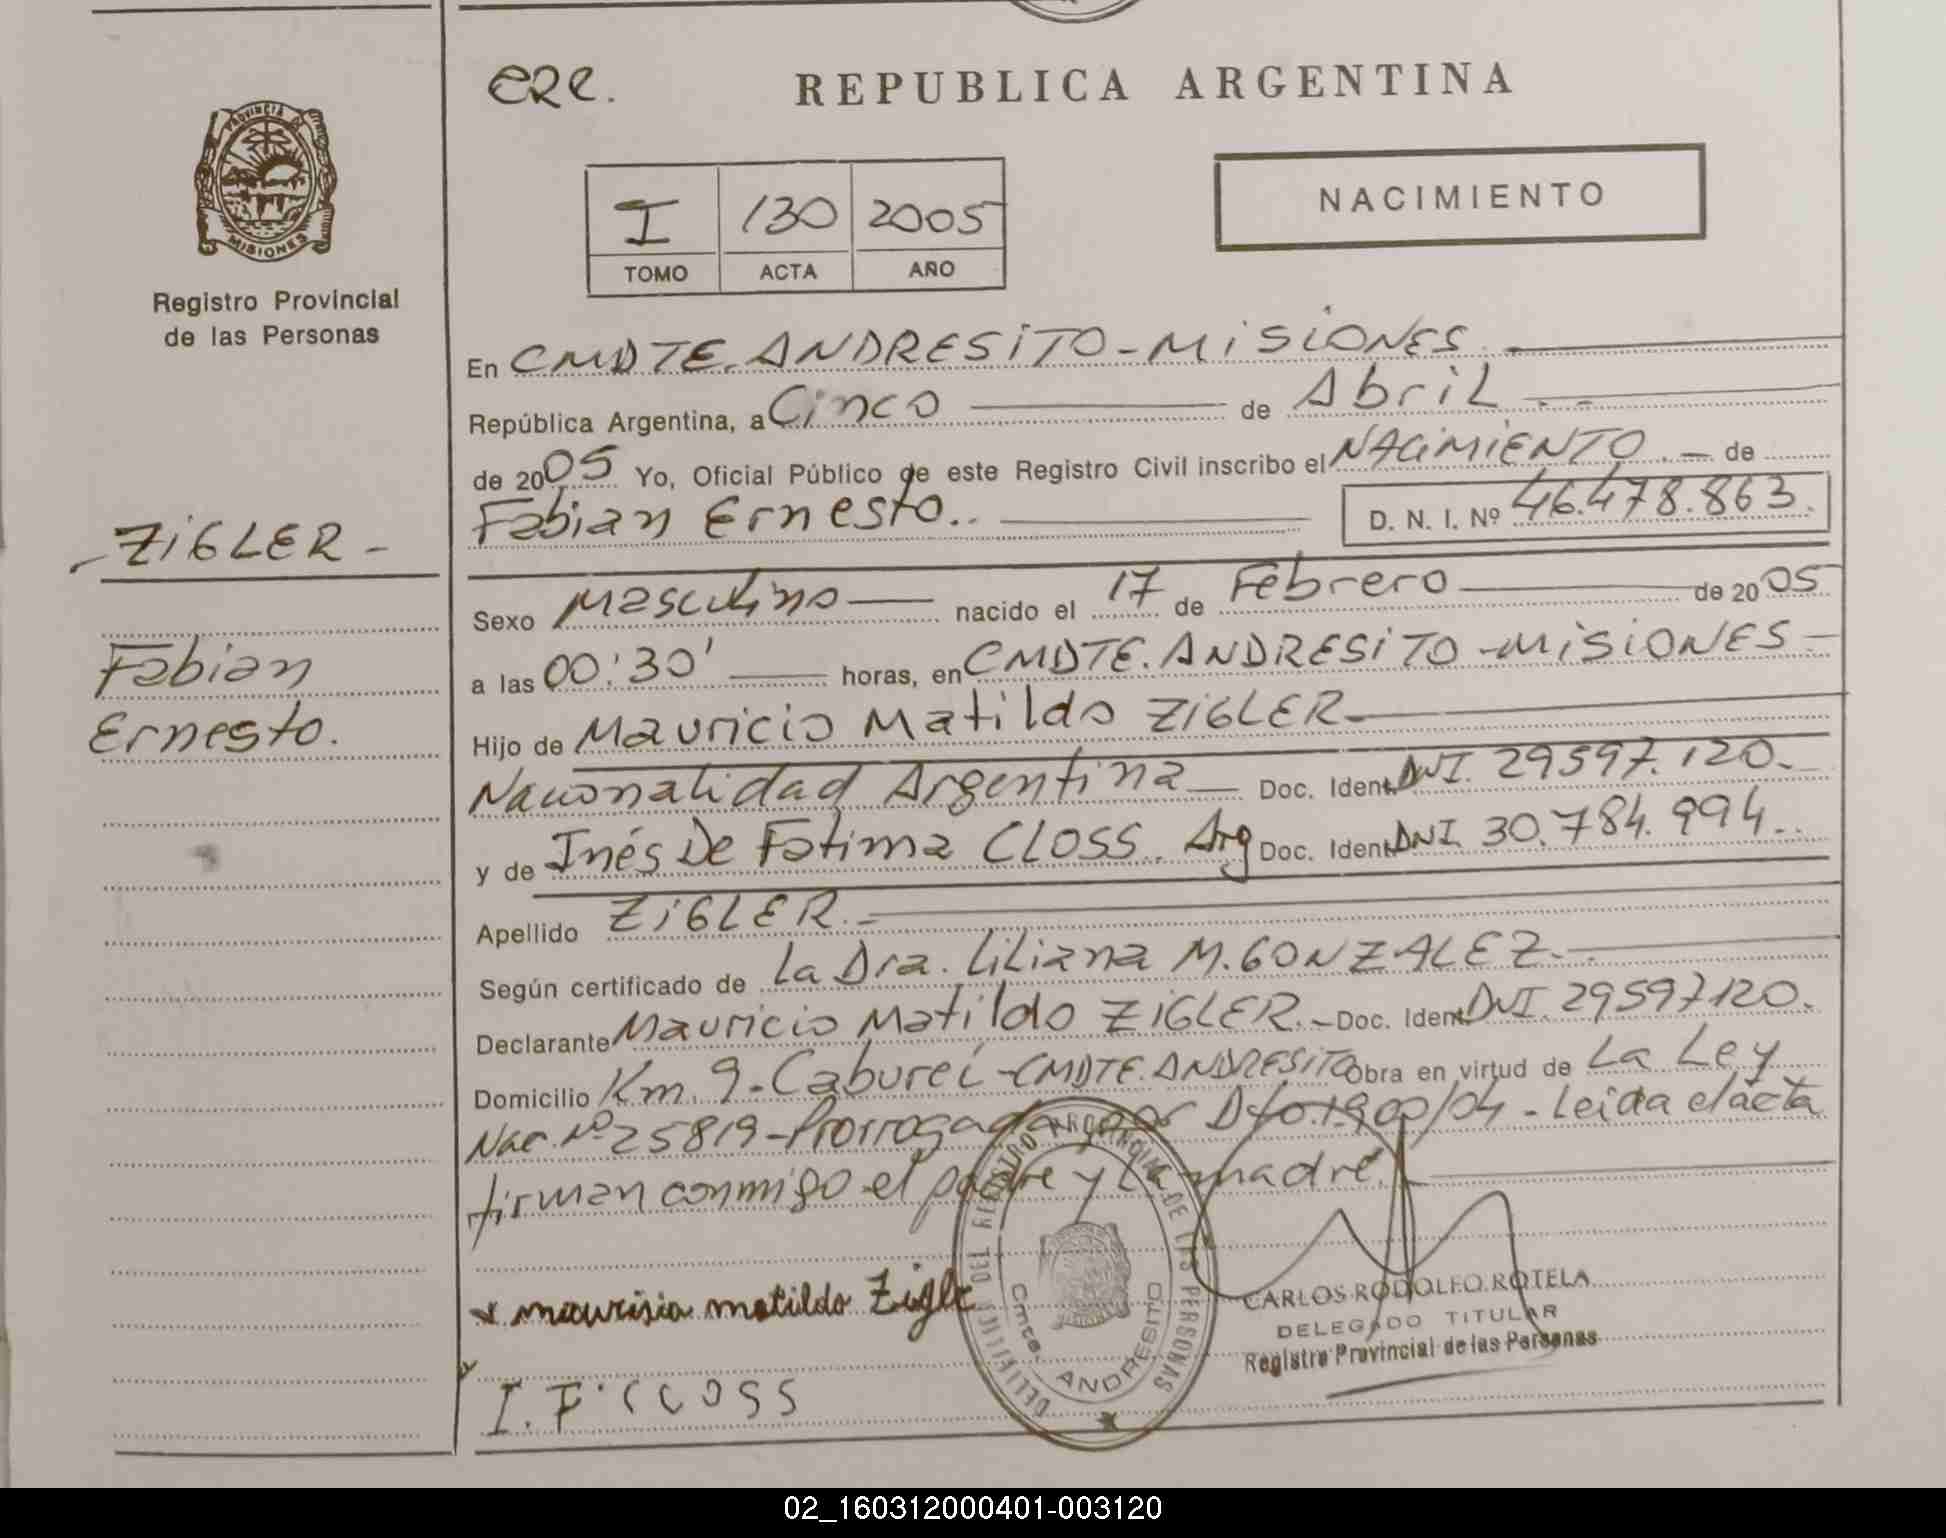 ere.
REPUBLICA ARGENTINA
PROVINCIA DE
MISIONES
Registro Provincial
de las Personas
I 130 2005
TOMO ACTA AÑO
NACIMIENTO
En CMDTE. ANDRESITO - MISIONES.
República Argentina, a Cinco de Abril
de 2005 Yo, Oficial Público de este Registro Civil inscribo el NACIMIENTO. - de
Fabian Ernesto. D. N. I. Nº 46.478.863.
- ZIGLER -
Fabian
Ernesto.
Sexo Masculino nacido el 17 de Febrero de 2005
a las 00:30' horas, en CMDTE. ANDRESITO - MISIONES -
Hijo de Mauricio Matildo ZIGLER
Nacionalidad Argentina Doc. Ident. DNI. 29597.120.
y de Inés De Fatima CLOSS. Arg Doc. Ident. DNI 30.784.994.
Apellido ZIGLER.
Según certificado de La Dra. Liliana M. GONZALEZ.
Declarante Mauricio Matildo ZIGLER. - Doc. Ident. DNI. 29597120.
Domicilio Km. 9 - Cabureí - CMDTE. ANDRESITO Obra en virtud de La Ley
Nac. Nº 25819 - Prorrogada por Dto. 1900/04 - Leída el acta
firman conmigo el padre y la madre.
x maurisio matildo Zigle
I. F. CLOSS
DEL REGISTRO PROVINCIAL DE LAS PERSONAS
Cmte. ANDRESITO
CARLOS RODOLFO ROTELA
DELEGADO TITULAR
Registro Provincial de las Personas
02_160312000401-003120